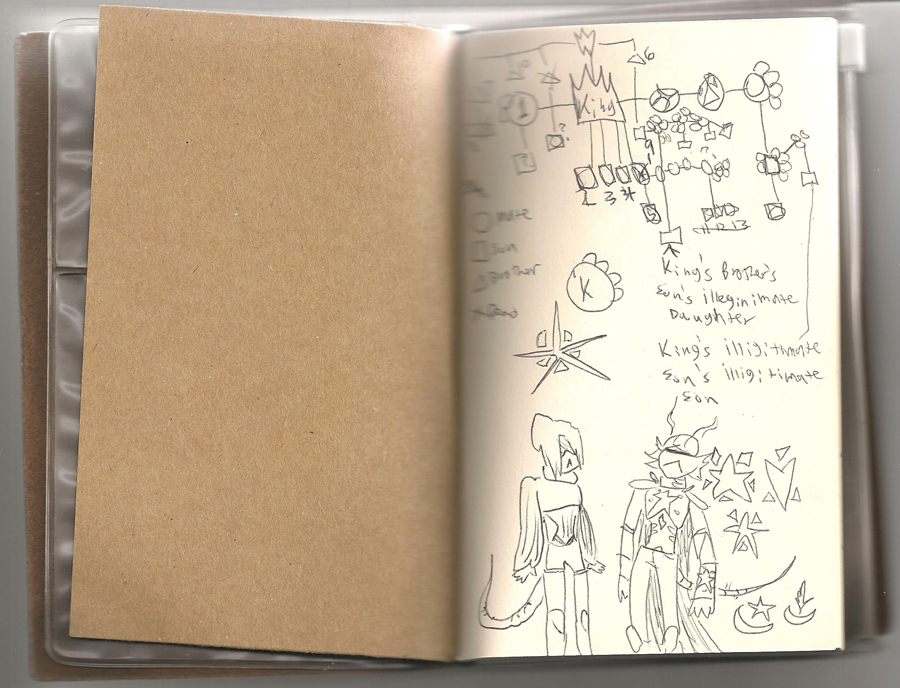 6
1
King
?
?
9
1
2 3 4
5
11 12 13
mate
Son
Brother
K
King's Brother's
Son's illeginimate
Daughter
King's illigitimate
Son's illigitimate
Son